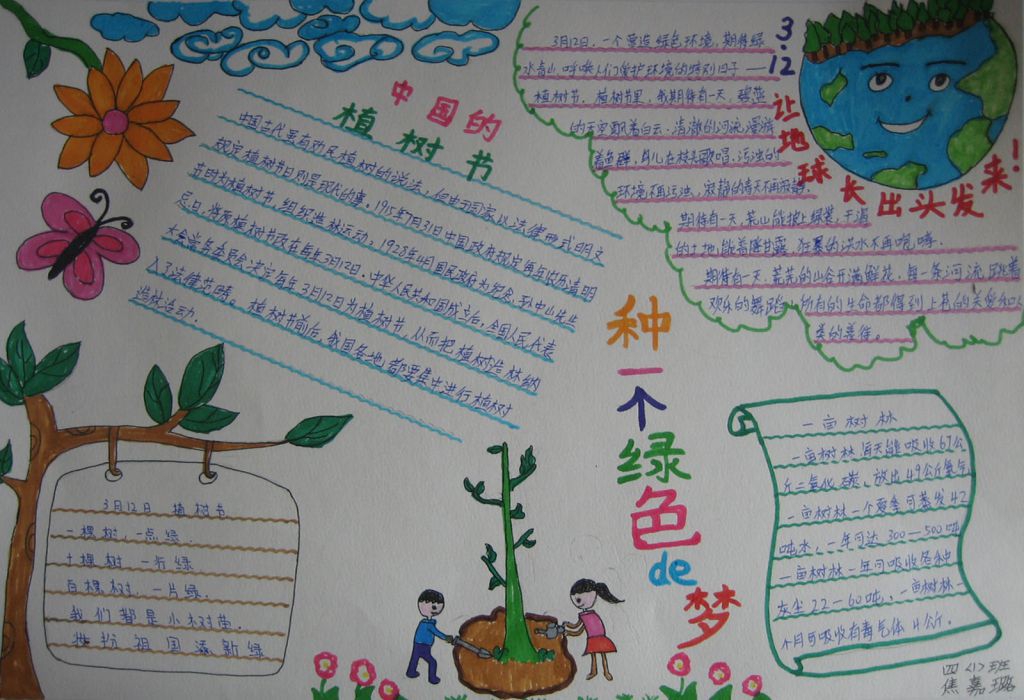 中国的
植树节
中国古代虽有劝民植树的说法，但由于国家以法律形式明文
规定植树节日则是现代的事。1915年7月31日中国政府规定每年农历清明
节时为植树节，组织造林运动。1928年4月国民政府为纪念孙中山先生
忌日，将原植树节改在每年3月12日。中华人民共和国成立后，全国人民代表
大会常务委员会决定每年3月12日为植树节，从而把植树造林纳
入了法律节畴。植树节前后，我国各地都要集中进行植树
造林活动.
3.12
让地球长出头发来！
3月12日，一个营造绿色环境，期待绿
水青山，呼唤人们爱护环境的特别日子——
植树节。植树节里，我期待有一天，碧蓝
的天空飘着白云，清澈的河流漫游
着鱼群，鸟儿在枝头歌唱，污浊的
环境不再污浊，寂静的春天不再寂静。
期待有一天，荒山能披上绿装，干渴
的土地能普降甘露，狂暴的洪水不再咆哮.
期待有一天，荒芜的山谷开满鲜花，每一条河流跳着
欢乐的舞蹈，所有的生命都得到上苍的关爱和人
类的善待。
种一个绿色de梦
3月12日 植树节
一棵树，一点绿.
十棵树 一行绿
百棵树，一片绿.
我们都是小树苗.
装扮祖国添新绿
一亩树林
一亩树林每天能吸收67公
斤二氧化碳，放出49公斤氧气
一亩树林一个夏季可蒸发42
吨水，一年可达300—500吨
一亩树林一年可吸收各种
灰尘22—60吨，一亩树林一
个月可吸收有毒气体4公斤。
四(1)班
焦嘉璐